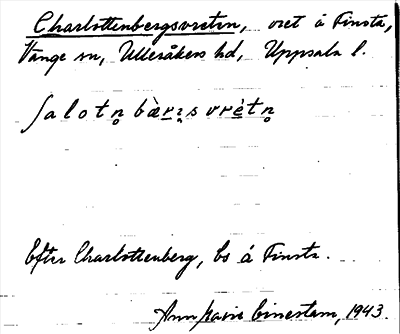 Charlottenbergsvreten, vret å Finsta,
Vänge sn, Ulleråkers hd, Uppsala l.
ʃalotn̥bæ̀rı̣svrètn̥
Efter Charlottenberg, bs å Finsta.
Ann Marie 1943.